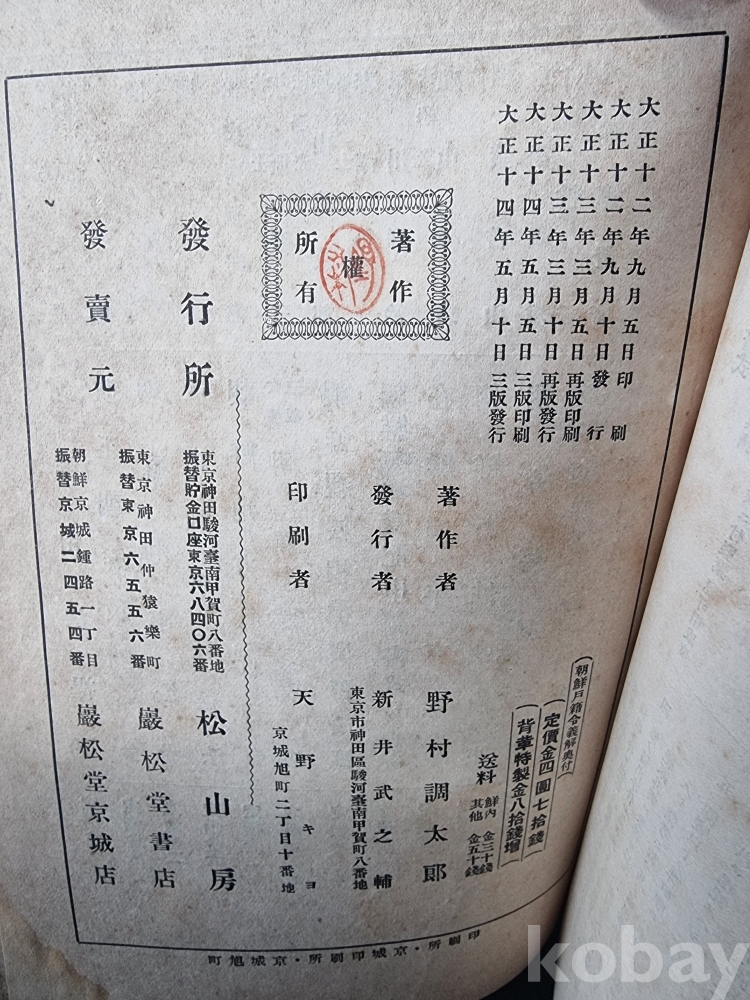 大正十二年九月五日印刷
大正十二年九月十日發行
大正十三年三月五日再版印刷
大正十三年三月十日再版發行
大正十四年五月五日三版印刷
大正十四年五月十日三版發行
著作
權
所有
朝鮮戶籍令義解奧付
定價金四圓七拾錢
背革特製金八拾錢增
送料
鮮內 金三十錢
其他 金五十錢
著作者 野村調太郎
發行者 新井武之輔
東京市神田區駿河臺南甲賀町八番地
印刷者 天野キヨ
京城旭町二丁目十番地
發行所
東京神田駿河臺南甲賀町八番地
振替貯金口座東京六八四〇六番
松山房
發賣元
東京神田仲猿樂町
振替東京六五五六番
巖松堂書店
朝鮮京城鍾路一丁目
振替京城二四五四番
巖松堂京城店
印刷所・京城印刷所・京城旭町
kobay